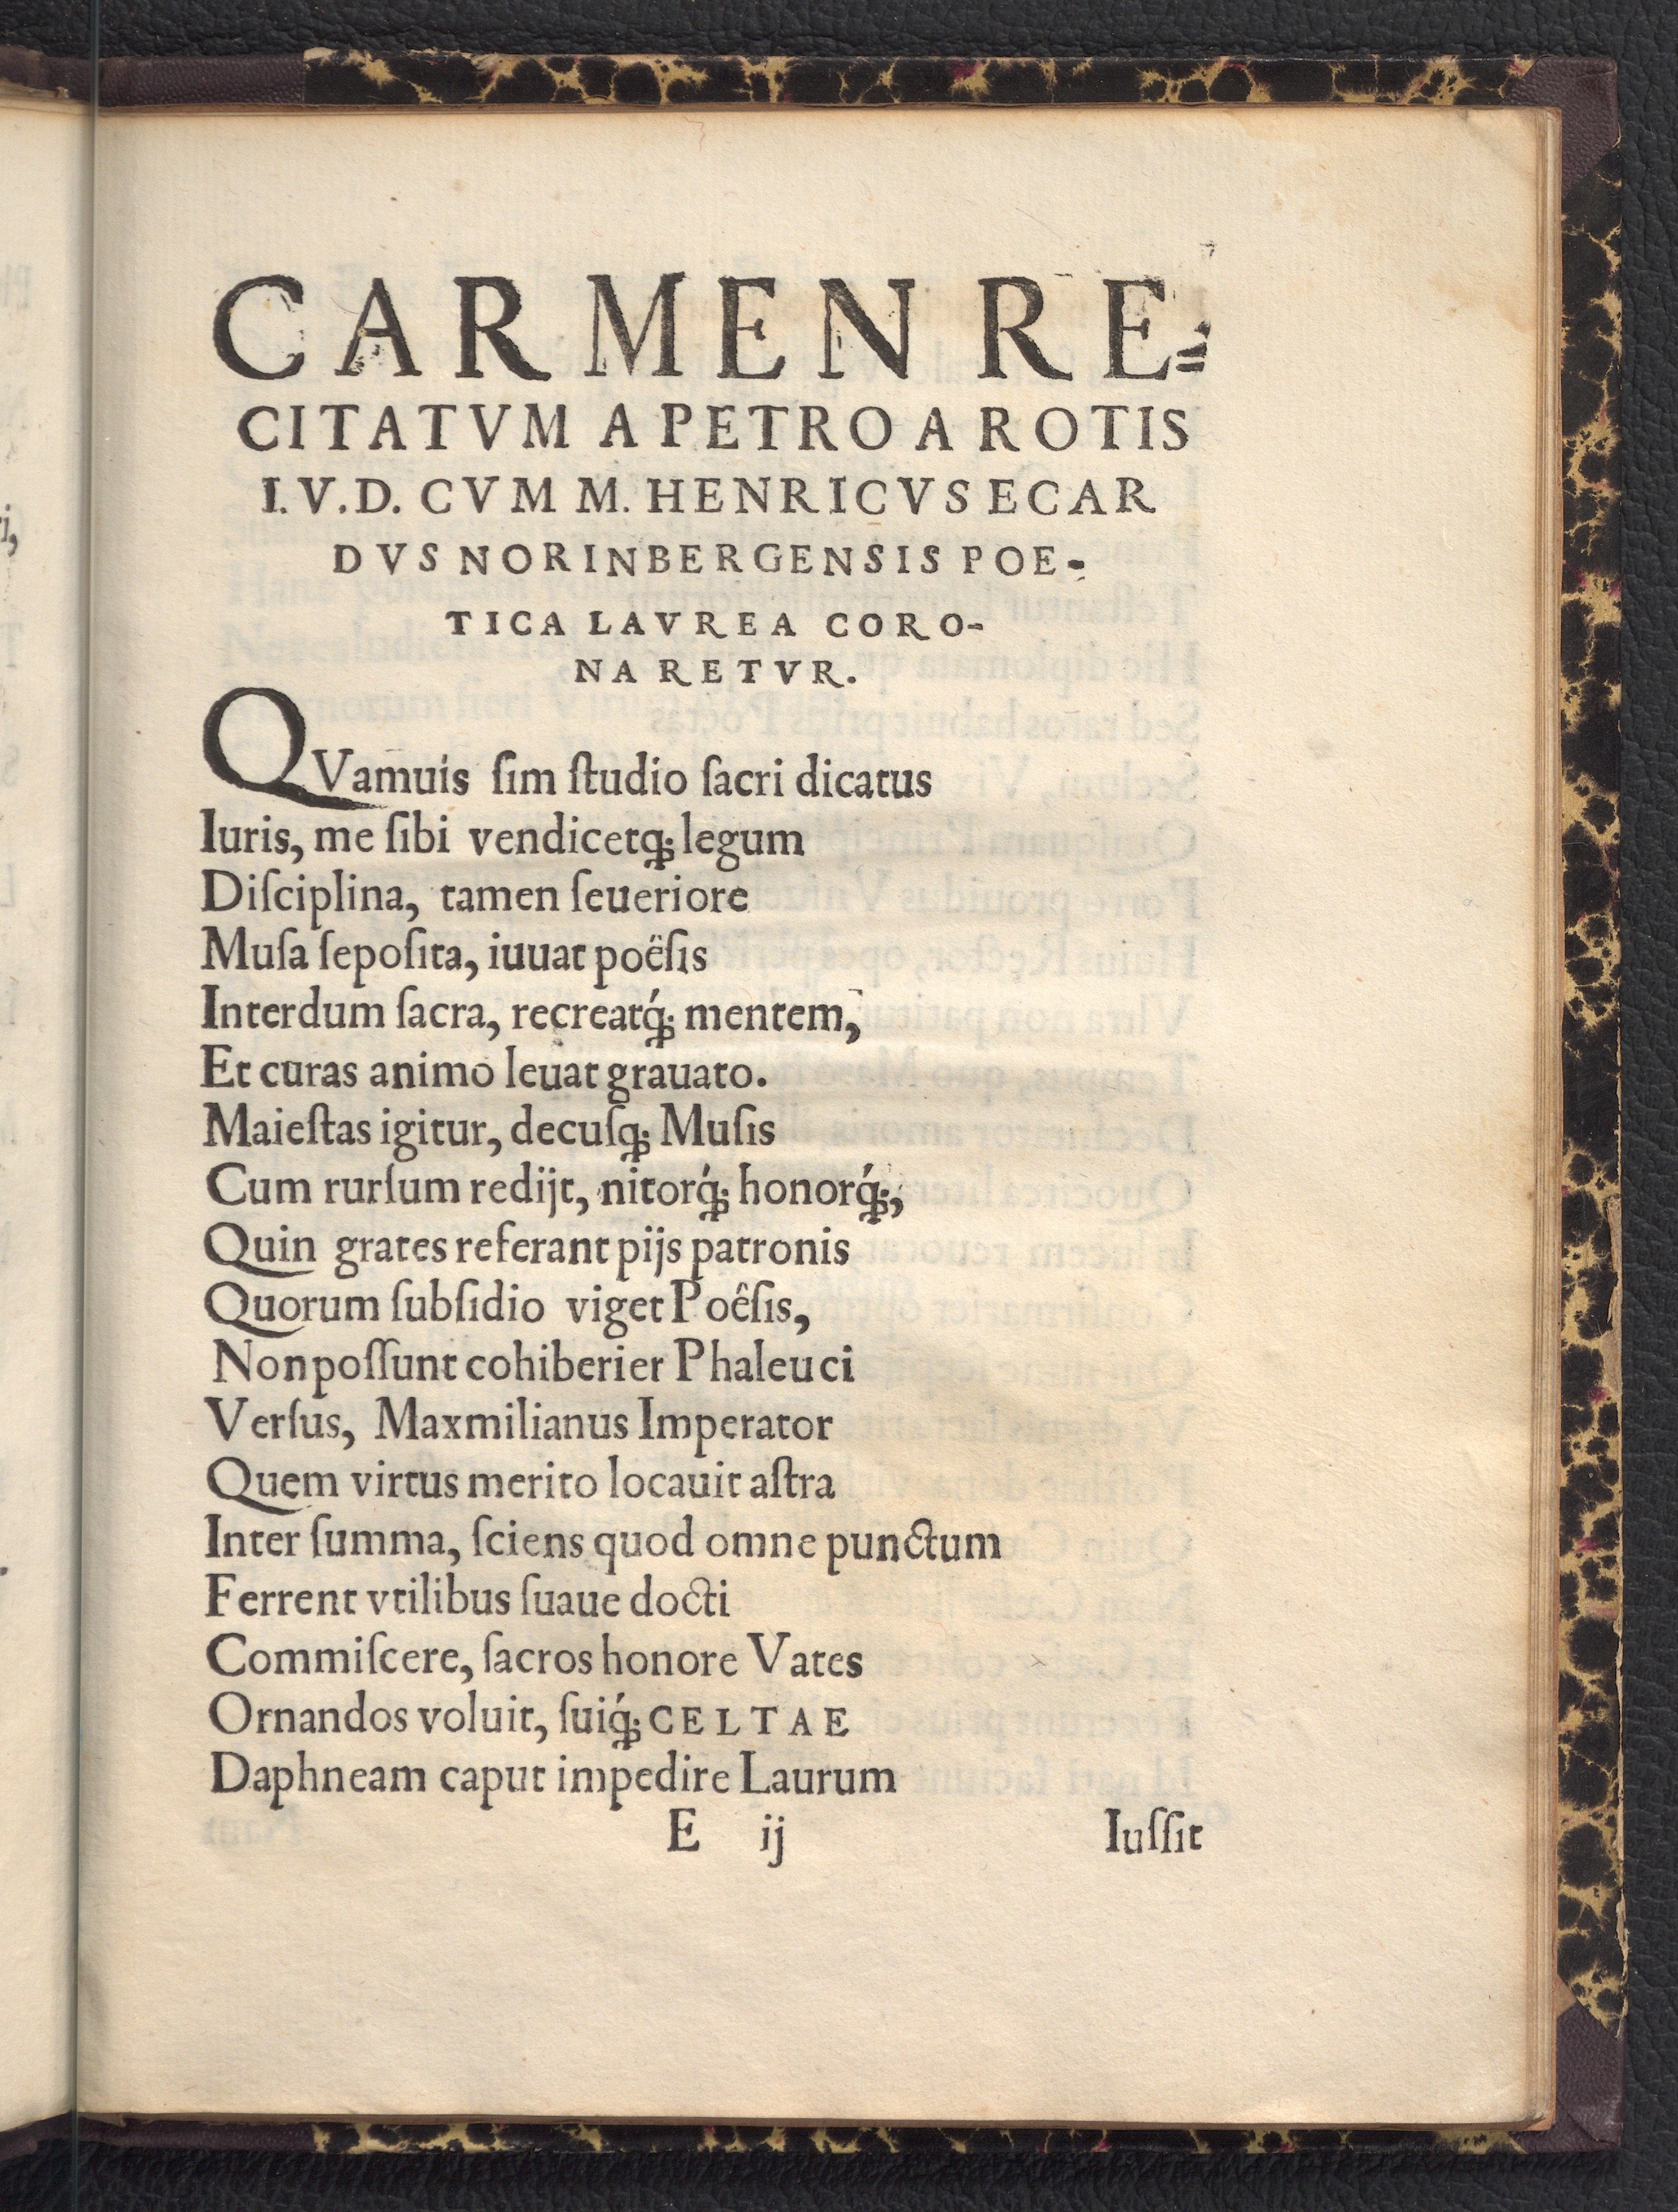 CARMEN RE=
CITATVM A PETRO A ROTIS
I.V.D. CVM M. HENRICVS ECAR
DVS NORINBERGENSIS POE-
TICA LAVREA CORO-
NARETVR.
QVamuis ſim ſtudio ſacri dicatus
Iuris, me ſibi vendicetq́; legum
Diſciplina, tamen ſeueriore
Muſa ſepoſita, iuuat poëſis
Interdum ſacra, recreatq́; mentem,
Et curas animo leuat grauato.
Maieſtas igitur, decuſq; Muſis
Cum rurſum redijt, nitorq́; honorq́;,
Quin grates referant pijs patronis
Quorum ſubſidio viget Poêſis,
Non poſſunt cohiberier Phaleuci
Verſus, Maxmilianus Imperator
Quem virtus merito locauit aſtra
Inter ſumma, ſciens quod omne punctum
Ferrent vtilibus ſuaue docti
Commiſcere, ſacros honore Vates
Ornandos voluit, ſuiq́; CELTAE
Daphneam caput impedire Laurum
E ij Iuſſit